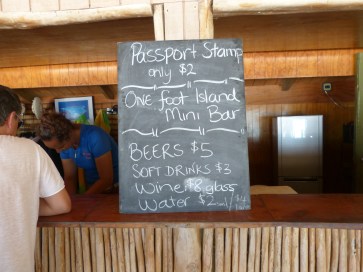 Passport Stamp
only $2
One foot Island
Mini Bar
BEERS $5
SOFT DRINKS $3
Wine $8 glass
Water $2